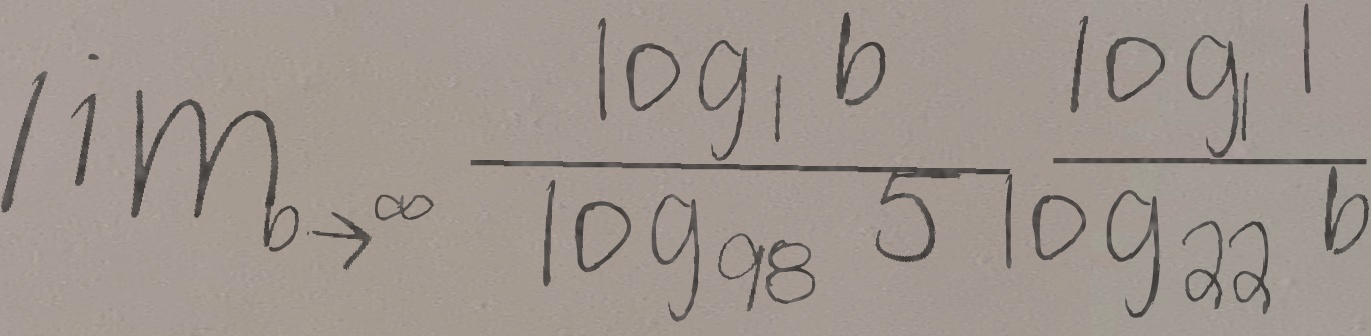 \lim_{b \to \infty} \frac{\log_1 b}{\log_{98} 5} \frac{\log_1 1}{\log_{22} b}